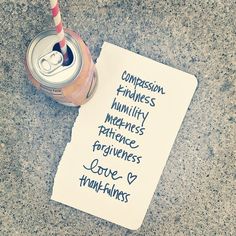 compassion
kindness
humility
meekness
patience
forgiveness
love ♡
thankfulness